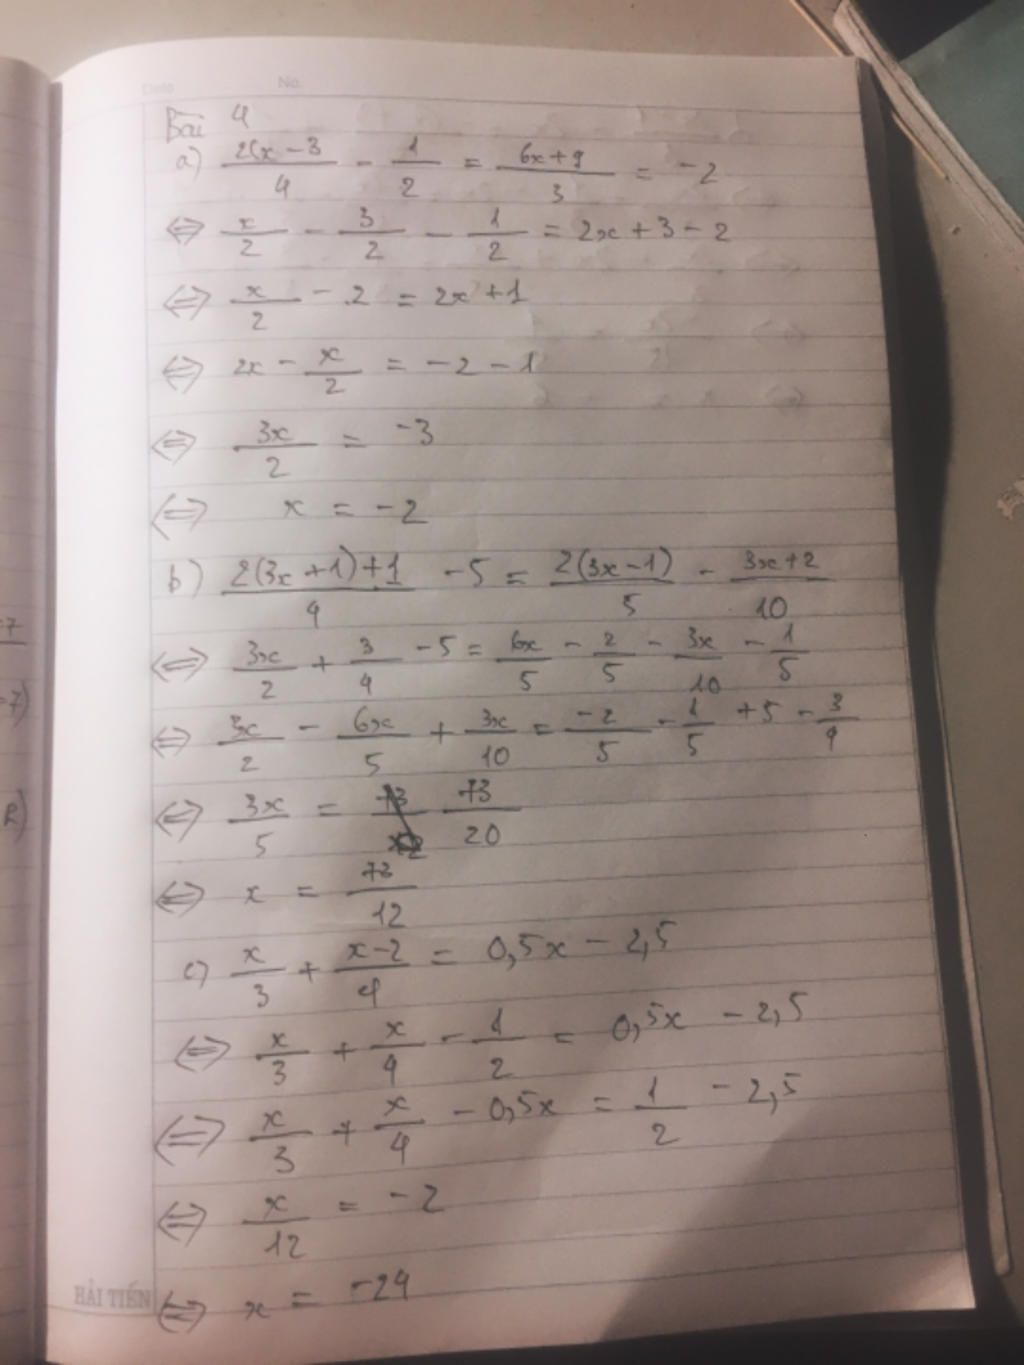 Date No.
Bài 4
a) \frac{2(x-3}{4} - \frac{1}{2} = \frac{6x+9}{3} = -2
⇔ \frac{x}{2} - \frac{3}{2} - \frac{1}{2} = 2x + 3 - 2
⇔ \frac{x}{2} - 2 = 2x + 1
⇔ 2x - \frac{x}{2} = -2 - 1
⇔ \frac{3x}{2} = -3
⇔ x = -2
b) \frac{2(3x+1)+1}{4} - 5 = \frac{2(3x-1)}{5} - \frac{3x+2}{10}
⇔ \frac{3x}{2} + \frac{3}{4} - 5 = \frac{6x}{5} - \frac{2}{5} - \frac{3x}{10} - \frac{1}{5}
⇔ \frac{3x}{2} - \frac{6x}{5} + \frac{3x}{10} = \frac{-2}{5} - \frac{1}{5} + 5 - \frac{3}{4}
⇔ \frac{3x}{5} = \frac{73}{20}
⇔ x = \frac{73}{12}
c) \frac{x}{3} + \frac{x-2}{4} = 0,5x - 2,5
⇔ \frac{x}{3} + \frac{x}{4} - \frac{1}{2} = 0,5x - 2,5
⇔ \frac{x}{3} + \frac{x}{4} - 0,5x = \frac{1}{2} - 2,5
⇔ \frac{x}{12} = -2
HẢI TIẾN
⇔ x = -24